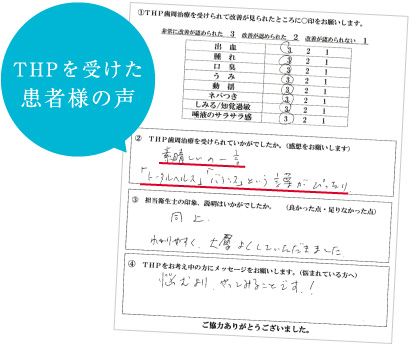 THPを受けた
患者様の声
① THP歯周治療を受けられて改善が見られたところに○印をお願いします。
非常に改善が認められた 3 改善が認められた 2 改善が認められない 1
出 血 3 2 1
腫 れ 3 2 1
口 臭 3 2 1
う み 3 2 1
動 揺 3 2 1
ネバつき 3 2 1
しみる/知覚過敏 3 2 1
唾液のサラサラ感 3 2 1
② THP歯周治療を受けられていかがでしたか。(感想をお願いします)
素晴しいの一言
「トータルヘルス」「バランス」という言葉がぴったり
③ 担当衛生士の印象、説明はいかがでしたか。 (良かった点・足りなかった点)
同上
わかりやすく、大層よくしていただきました
④ THPをお考え中の方にメッセージをお願いします。(悩まれている方へ)
悩むより、やってみることです!
ご協力ありがとうございました。